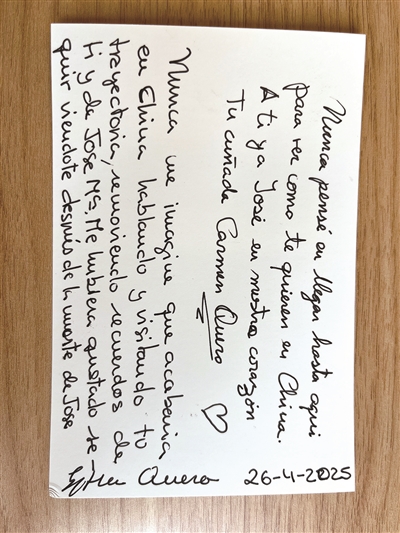 Nunca pensé en llegar hasta aqui
para ver como te quieren en China.
A ti y a José en nuestro corazón
Tu cuñada Carmen Quero
Nunca me imagine que acabaria
en China hablando y visitando tu
trayectoria, removiendo recuerdos de
ti y de Jose Mª. Me hubiera gustado se-
guir viendote después de la muerte de Jose
Quero 26-4-2025